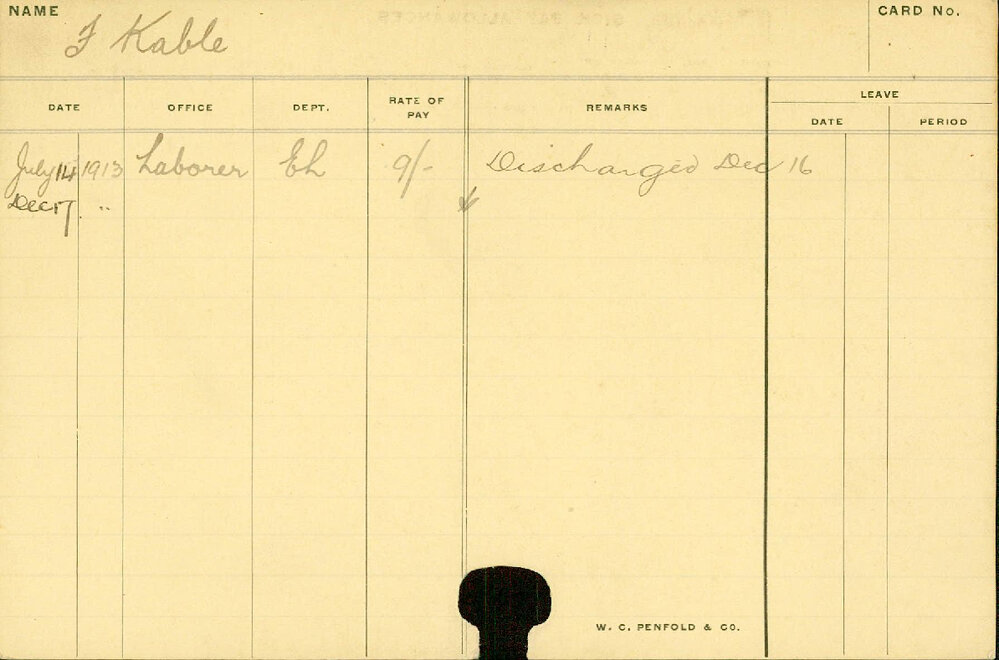 NAME
F Kable
CARD No.
DATE OFFICE DEPT. RATE OF PAY REMARKS LEAVE
DATE PERIOD
July 14 1913 Laborer Eh 9/- Discharged Dec 16
Dec 17 "
W. C. PENFOLD & CO.